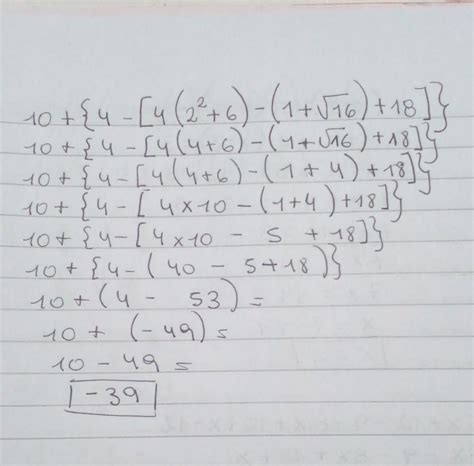 10 + {4 - [4(2²+6) - (1+√16) + 18]}
10 + {4 - [4(4+6) - (1+√16) + 18]}
10 + {4 - [4(4+6) - (1+4) + 18]}
10 + {4 - [4×10 - (1+4) + 18]}
10 + {4 - [4×10 - 5 + 18]}
10 + {4 - (40 - 5 + 18)}
10 + (4 - 53) =
10 + (-49) =
10 - 49 =
-39